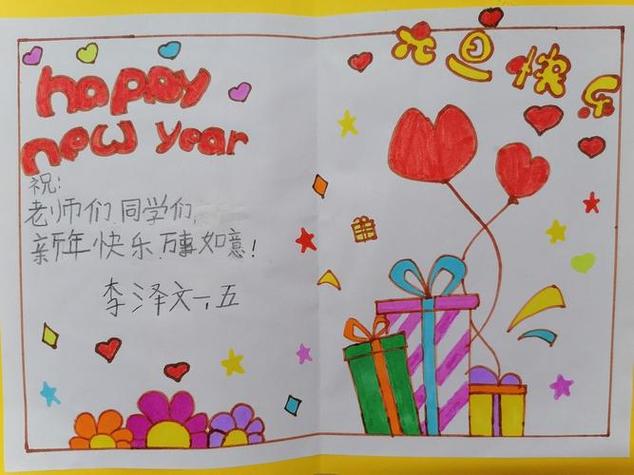 happy
new year
祝:
老师们、同学们,
新年快乐、万事如意!
李泽文一、五
元旦快乐